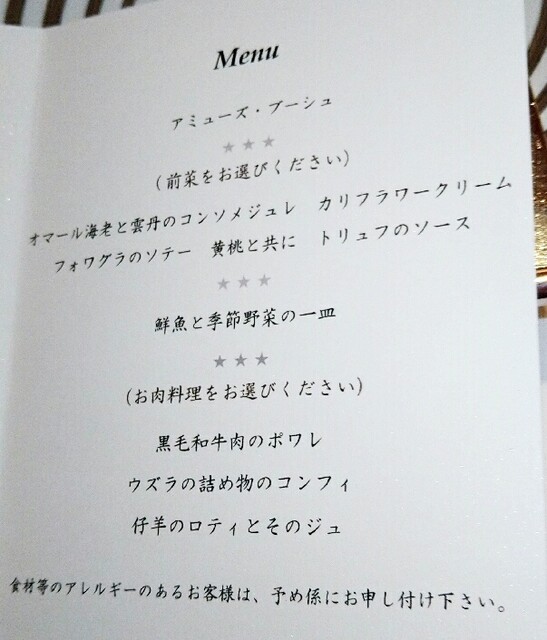 Menu
アミューズ・ブーシュ
★★★
(前菜をお選びください)
オマール海老と雲丹のコンソメジュレ　カリフラワークリーム
フォワグラのソテー　黄桃と共に　トリュフのソース
★★★
鮮魚と季節野菜の一皿
★★★
(お肉料理をお選びください)
黒毛和牛肉のポワレ
ウズラの詰め物のコンフィ
仔羊のロティとそのジュ
食材等のアレルギーのあるお客様は、予め係にお申し付け下さい。